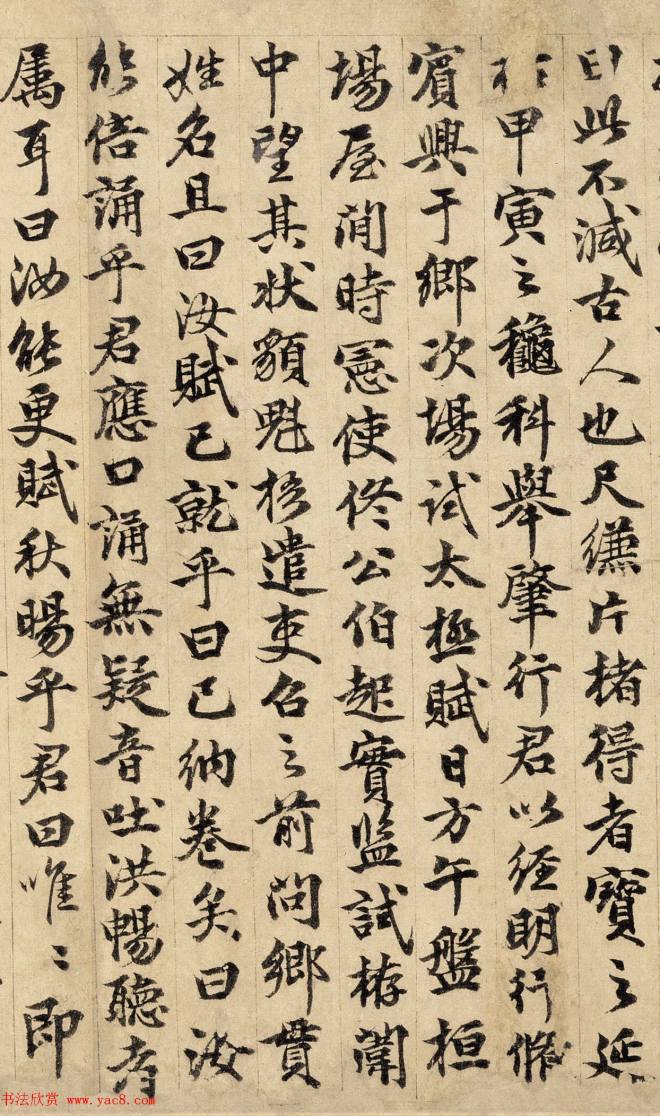 曰此不減古人也尺縑片楮得者寶之延
祐甲寅之龝科舉肇行君以经明行脩
賓興于鄉次場試太極賦日方午盤桓
場屋间時憲使佟公伯起實监試栫闈
中望其状貌魁梧遣吏召之前问鄉貫
姓名且曰汝賦已就乎曰已纳卷矣曰汝
能倍誦乎君應口誦無疑音吐洪暢聽者
属耳曰汝能更賦秋暘乎君曰唯〻即
书法欣赏 www.yac8.com